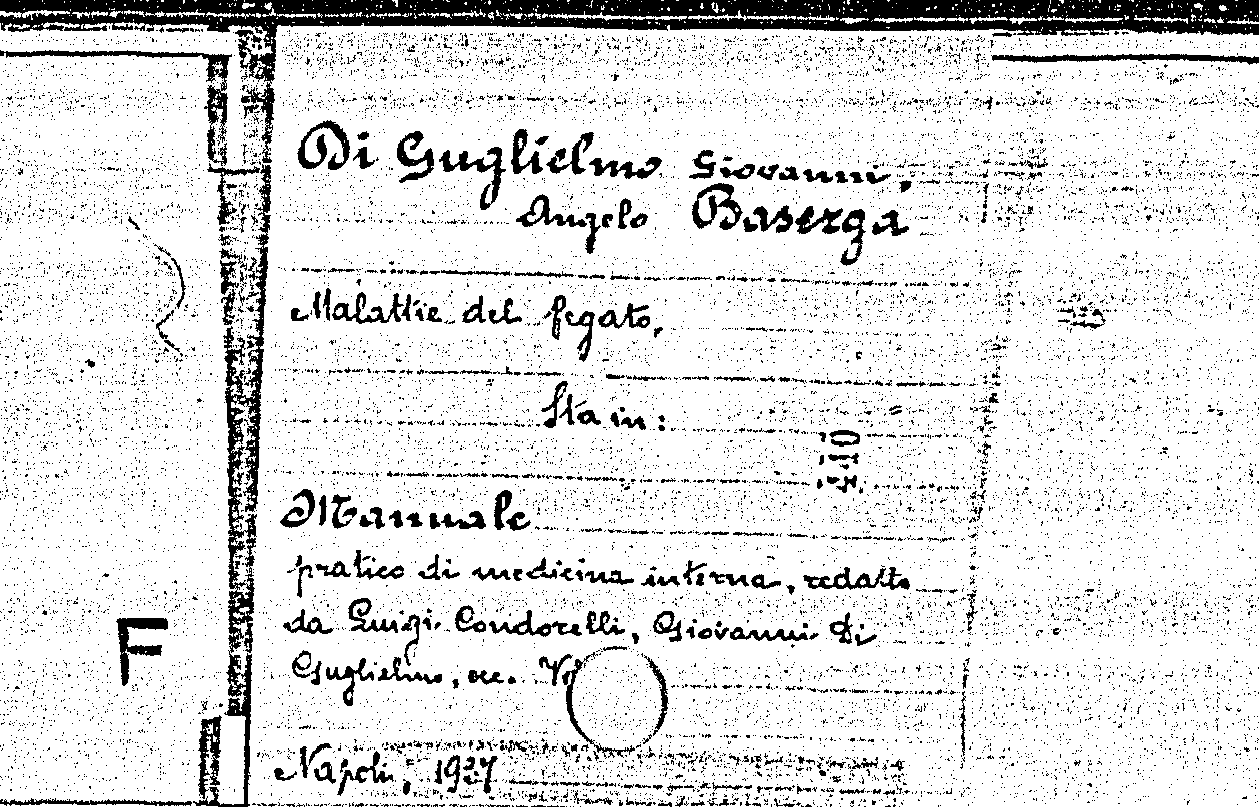 Di Guglielmo Giovanni,
Angelo Baserga
Malattie del fegato,
Sta in:
Manuale
pratico di medicina interna, redatto
da Luigi Condorelli, Giovanni Di
Guglielmo, ecc.
F
Napoli, 1937